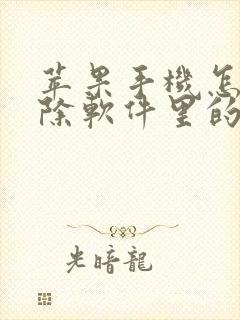 苹果手機怎
除軟件里的
光暗龍